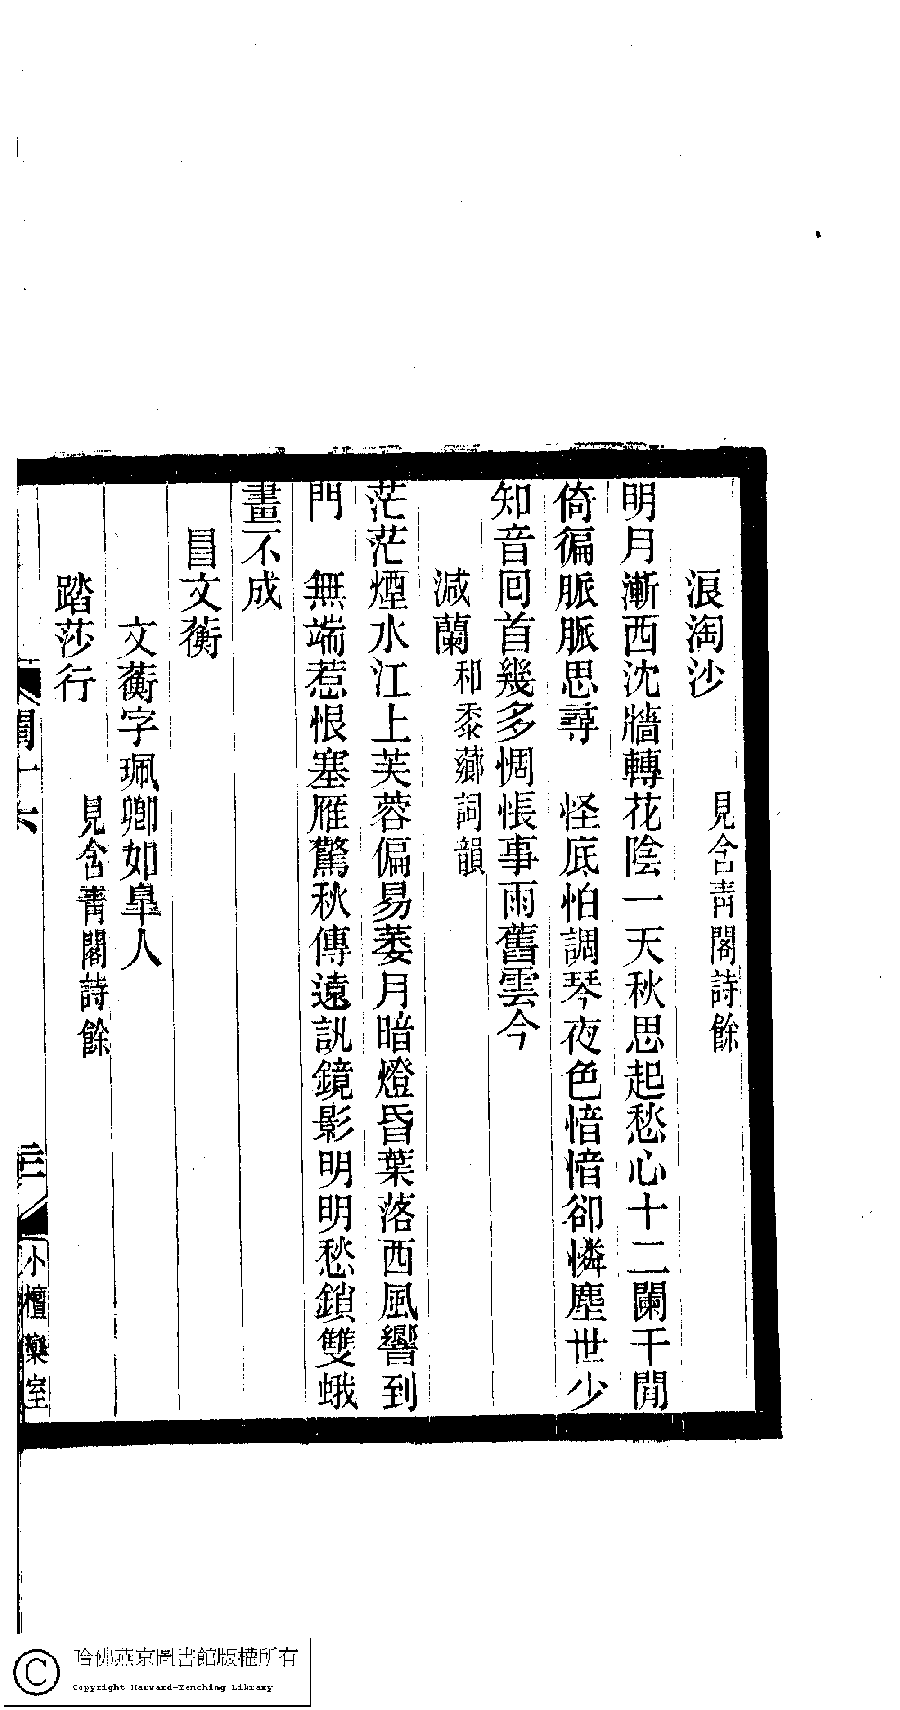 浪淘沙　見含青閣詩餘
明月漸西沈牆轉花陰一天秋思起愁心十二闌干閒
倚徧脈脈思尋　怪底怕調琴夜色愔愔卻憐塵世少
知音回首幾多惆悵事雨舊雲今
減蘭　和黍薌詞韻
茫茫煙水江上芙蓉偏易萎月暗燈昏葉落西風響到
門　無端惹恨塞雁驚秋傳遠訊鏡影明明愁鎖雙蛾
畫不成
冒文蘅
文蘅字珮卿如臯人
踏莎行　見含青閣詩餘
閨十六
小檀欒室
哈佛燕京圖書館版權所有
Copyright Harvard-Yenching Library